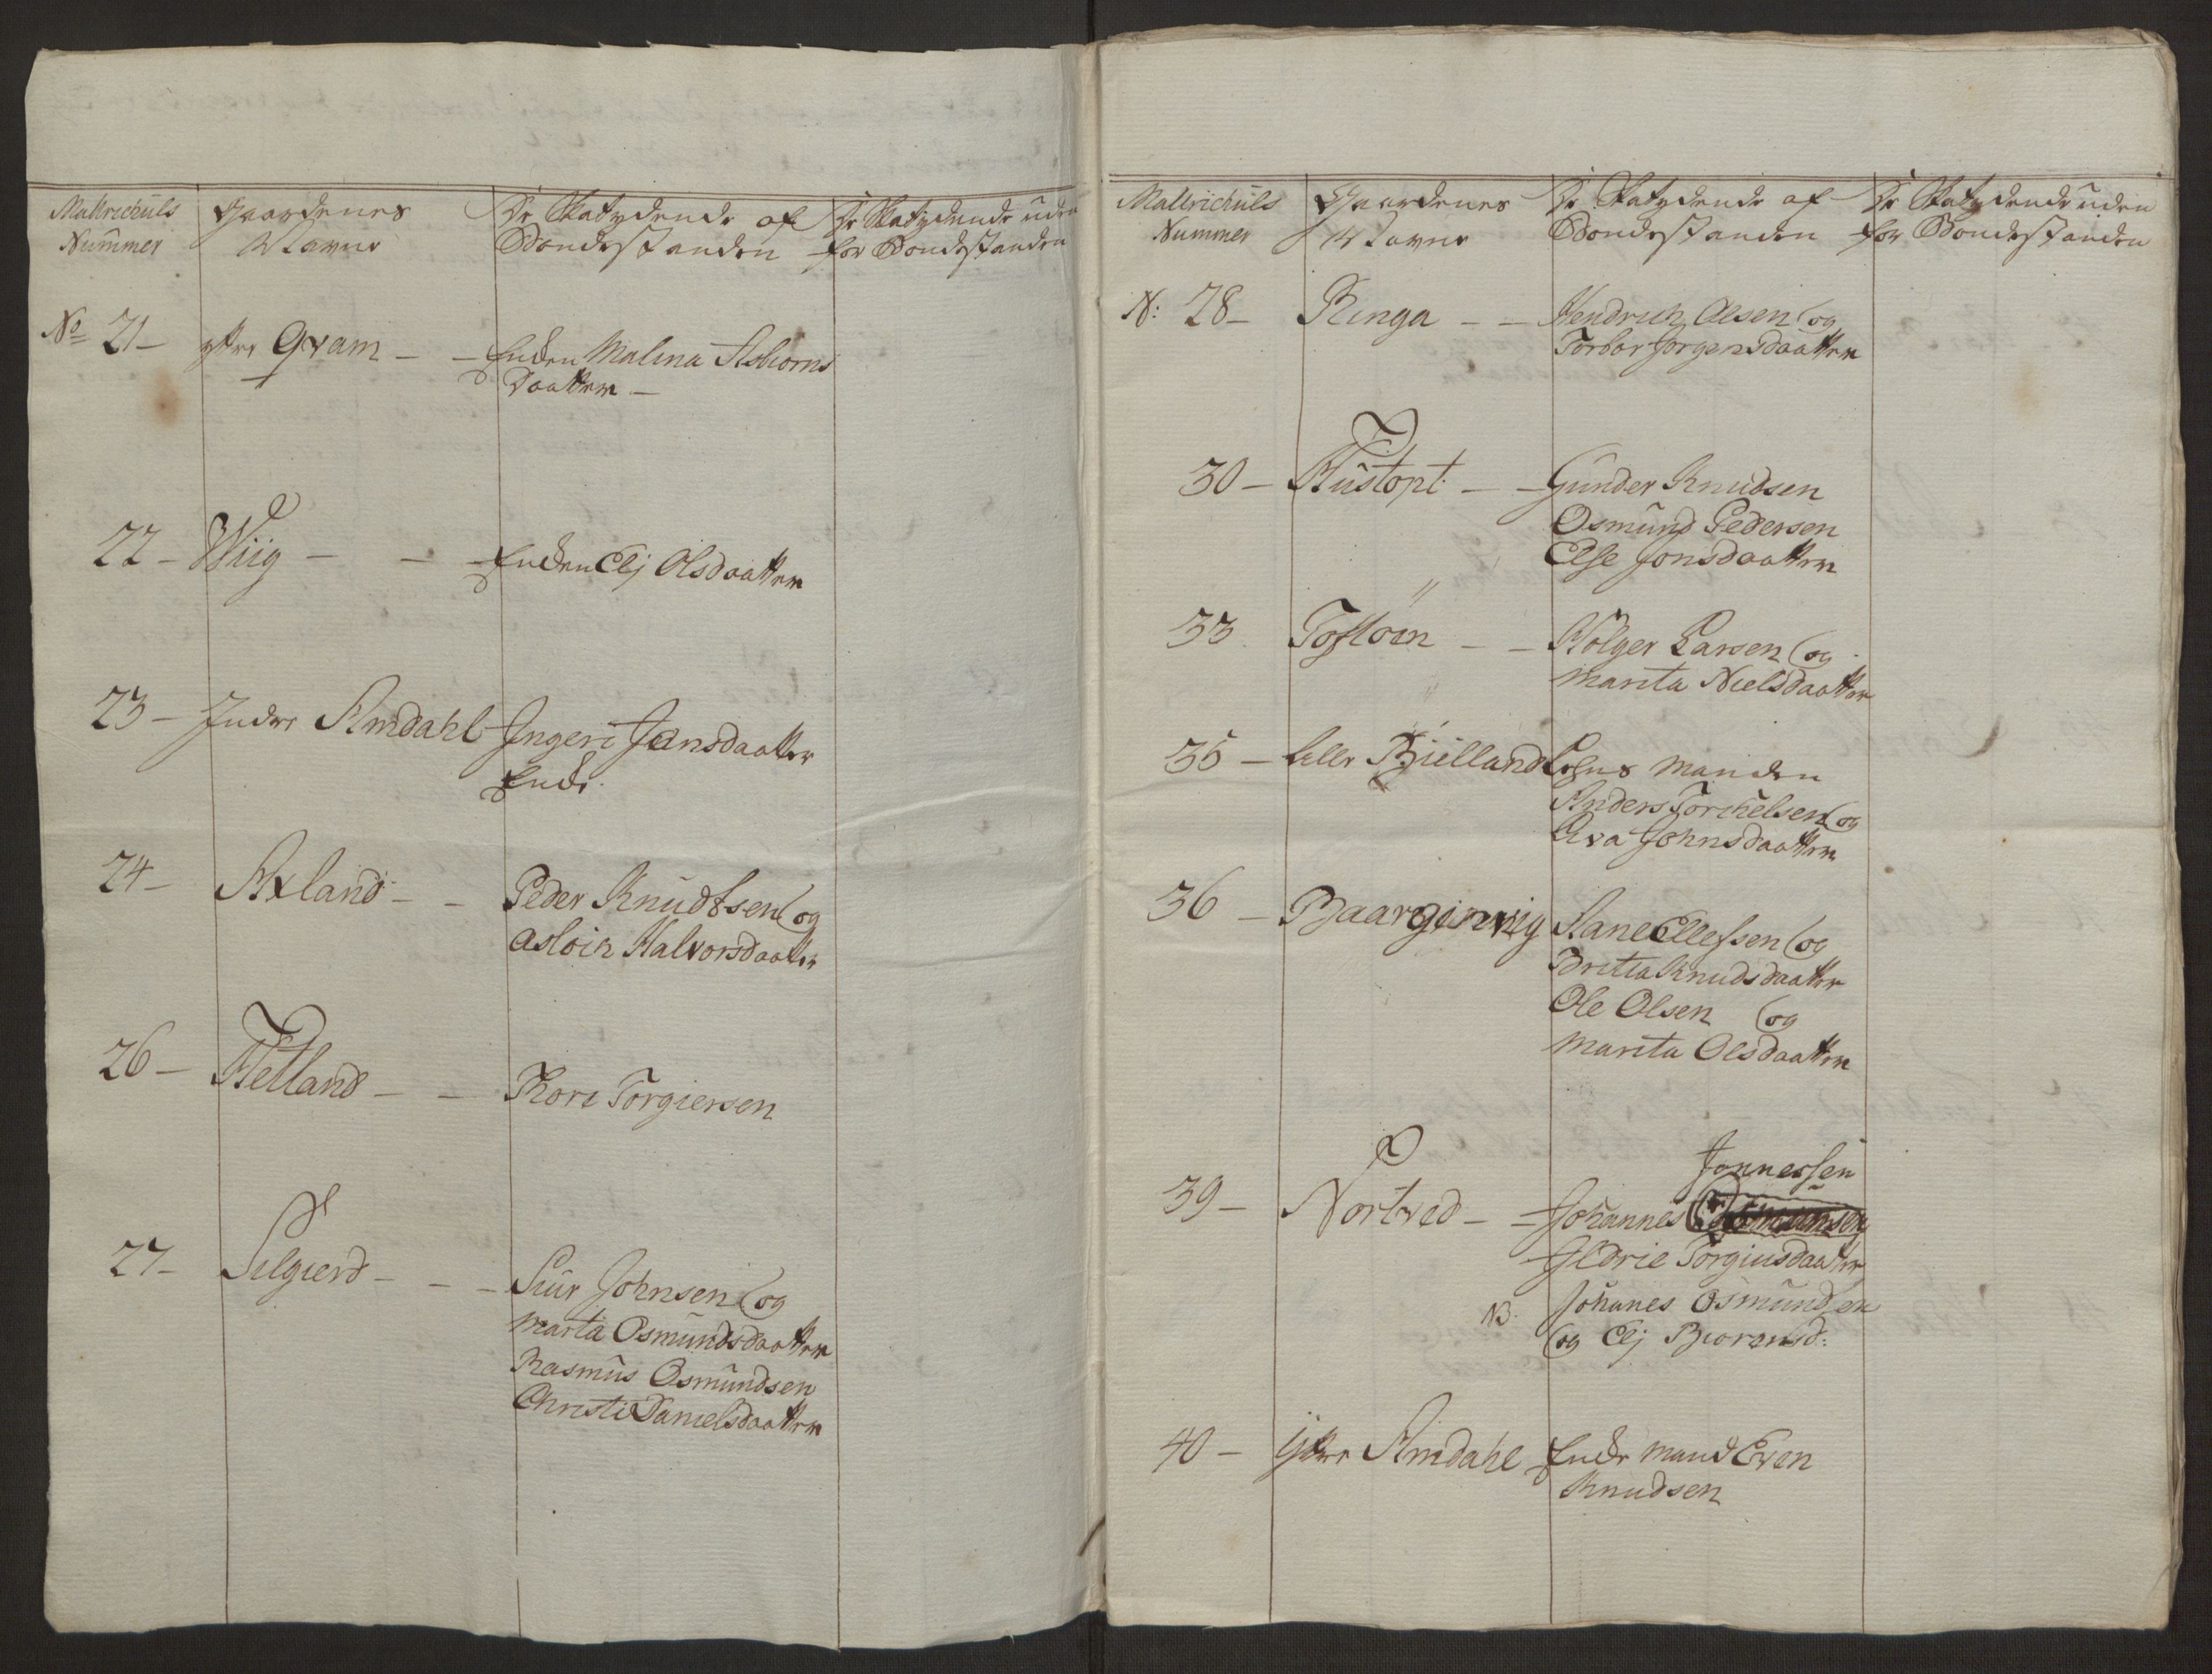 Mattrichuls
Nummer
Gaardenes
Navne
De Skatydende af
Bondestanden
De Skatydende uden
for Bondestanden
No 21 – ytre Qvam – – Enken Malina Asbiorns
Daatter –
22 – Wiig – – – Enken Elj Olsdaatter
23 – Indre Amdahl Ingeri Jansdaatter
Enke.
24 – Axland – – Peder Knudtsen og
Asloir Halvorsdaatter
26 – Hetland – – Thore Torgiersen
27 – Selgierd – – – Siur Johnsen og
Marta Osmundsdaatter
Rasmus Osmundsen
Christi Danielsdaatter
Mattrichuls
Nummer
Gaardenes
Navne
De Skatydende af
Bondestanden
De Skatydende uden
for Bondestanden
N: 28 – Ringa – – Hendrich Olsen og
Torbor Jorgensdaatter
30 – Hustopt – – Gunder Knudsen
Osmund Pedersen
Else Jonsdaatter
33 Toftøen – – Holger Larsen og
Marita Nielsdaatter
35 – Lille Bielland Lehns Manden
Anders Torchelsen og
Eva Johnsdaatter
36 – Baargervig Aane Ellefsen og
Britta Knudsdaatter
Ole Olsen og
Marita Olsdaatter
Jonnessen
39 – Nortved – – Johannes
Torgiusdaatter
NB. Johanes Osmundsen
og Elj Biorensd:
40 – Ytre Amdahl Enke Mand Even
Knudsen